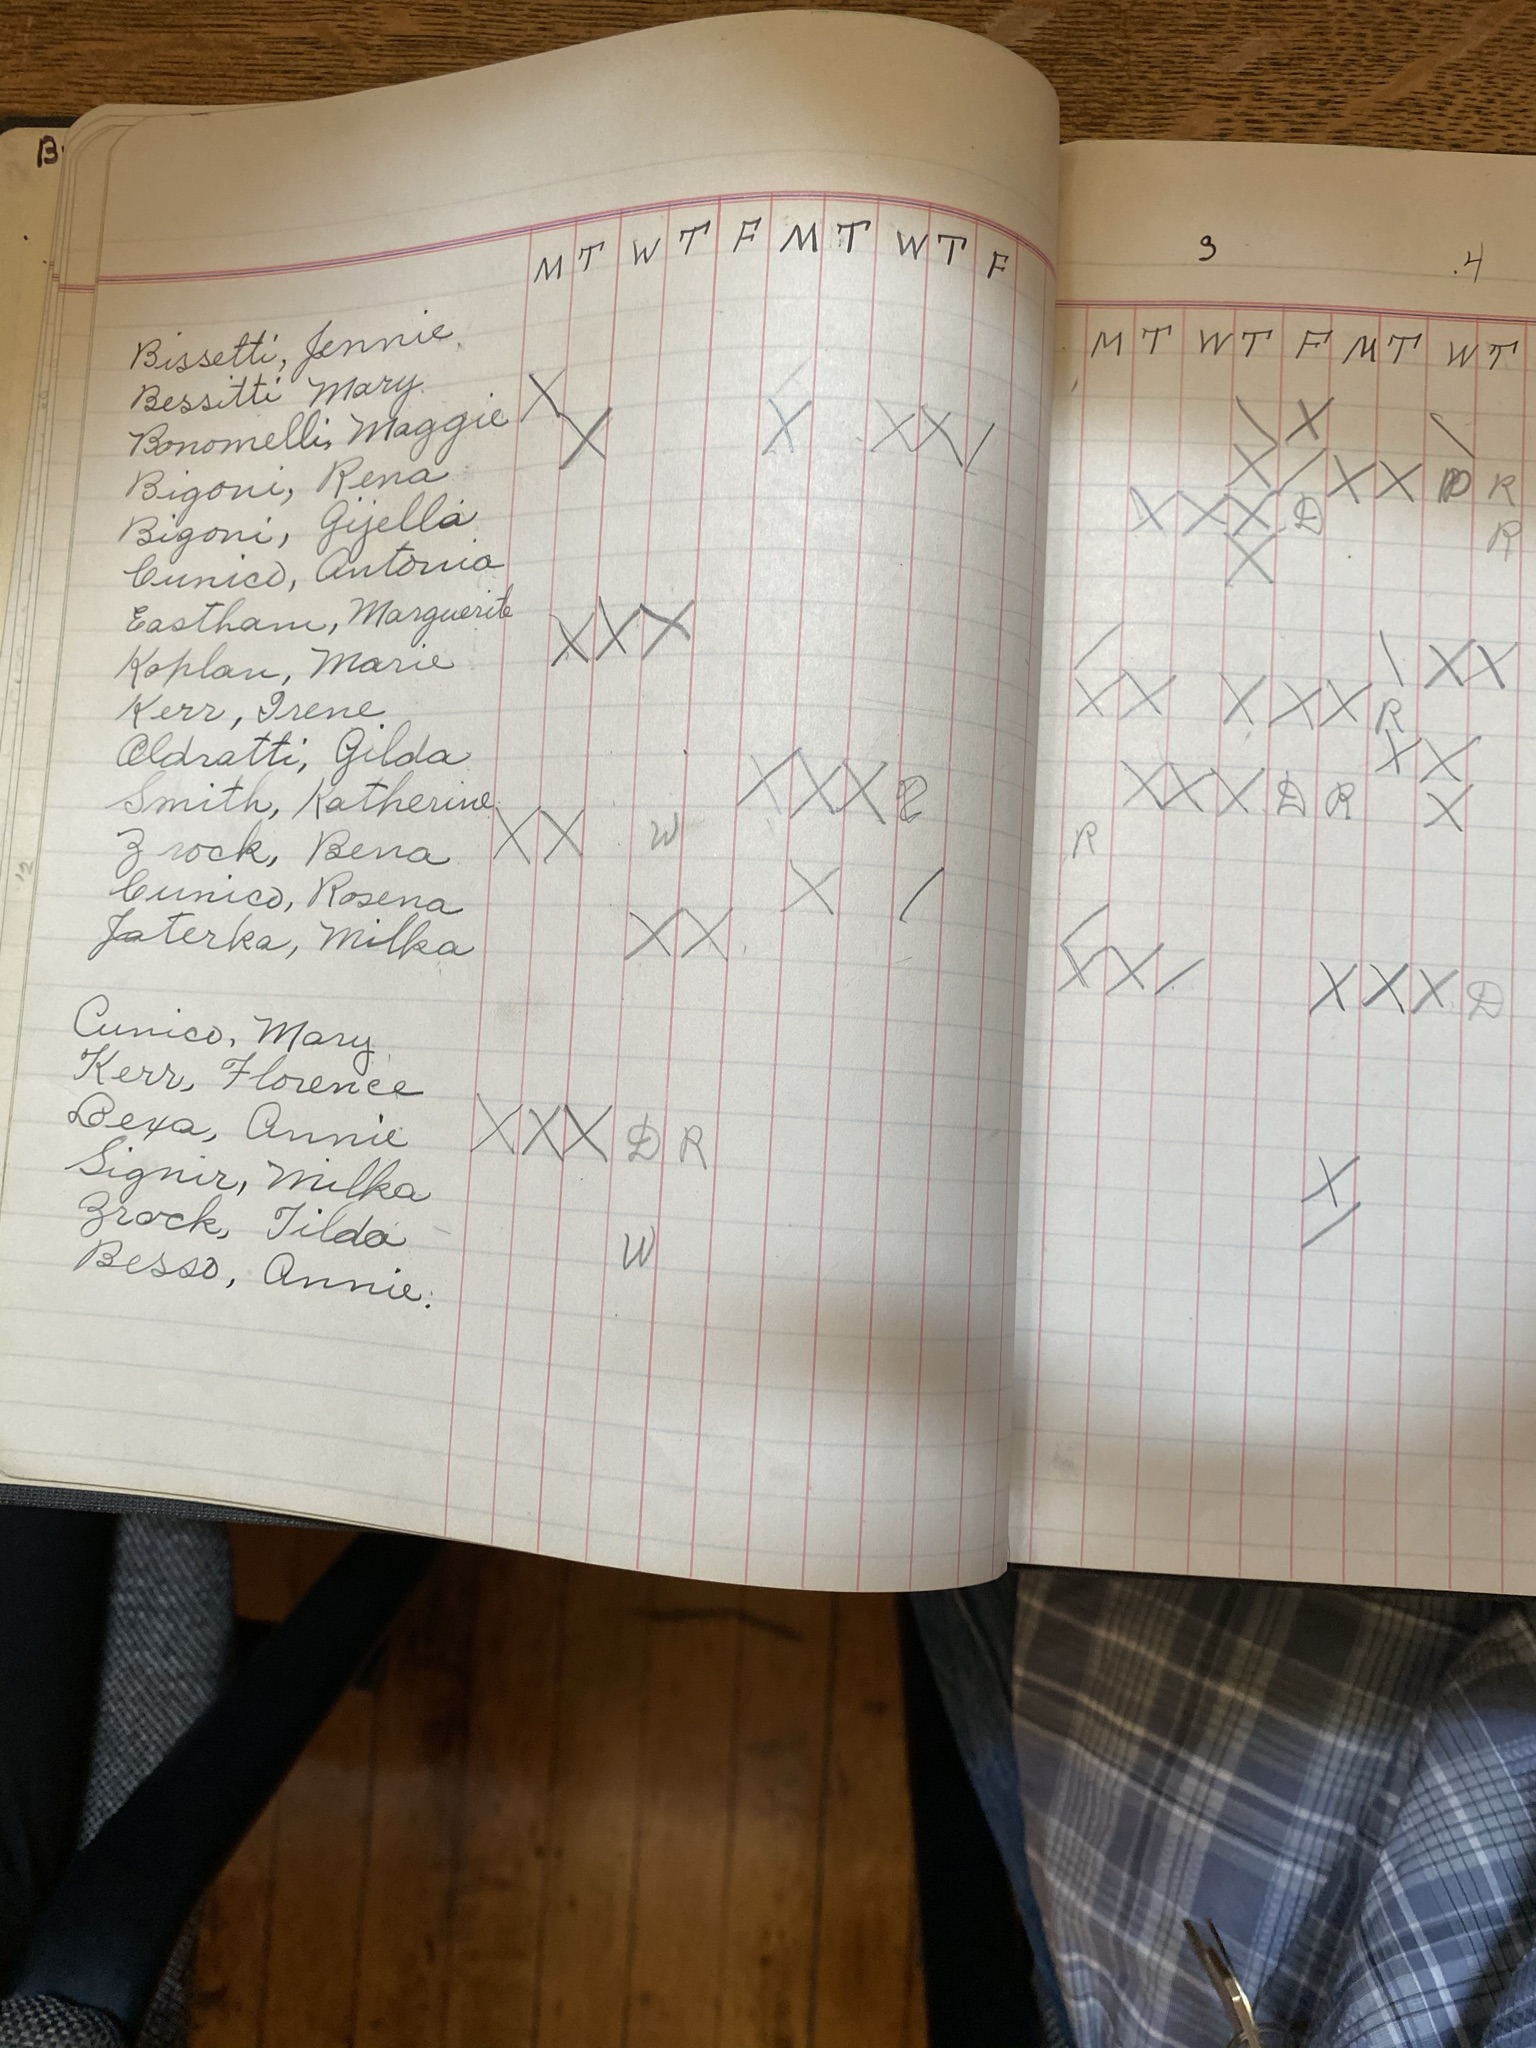 B
M T W T F M T W T F
Bissetti, Jennie
Bessitti Mary X
Bonomelli, Maggie X X X X /
Bigoni, Rena
Bigoni, Gijella
Cunico, Antonia
Eastham, Marguerite
Koplan, Marie X X X
Kerr, Irene
Oldratti, Gilda
Smith, Katherine X X X R
Zrock, Bena X X W
Cunico, Rosena X /
Jaterka, Milka X X
Cunico, Mary
Kerr, Florence
Bexa, Annie X X X D R
Signir, Milka
Zrock, Tilda
Besso, Annie. W
3 4
M T W T F M T W T
\ X \
X / X X D R
X X X D R
X
/ \ X X
X X X X X R
X X
X X X D R X
R
/
X X / X X X D
X
/